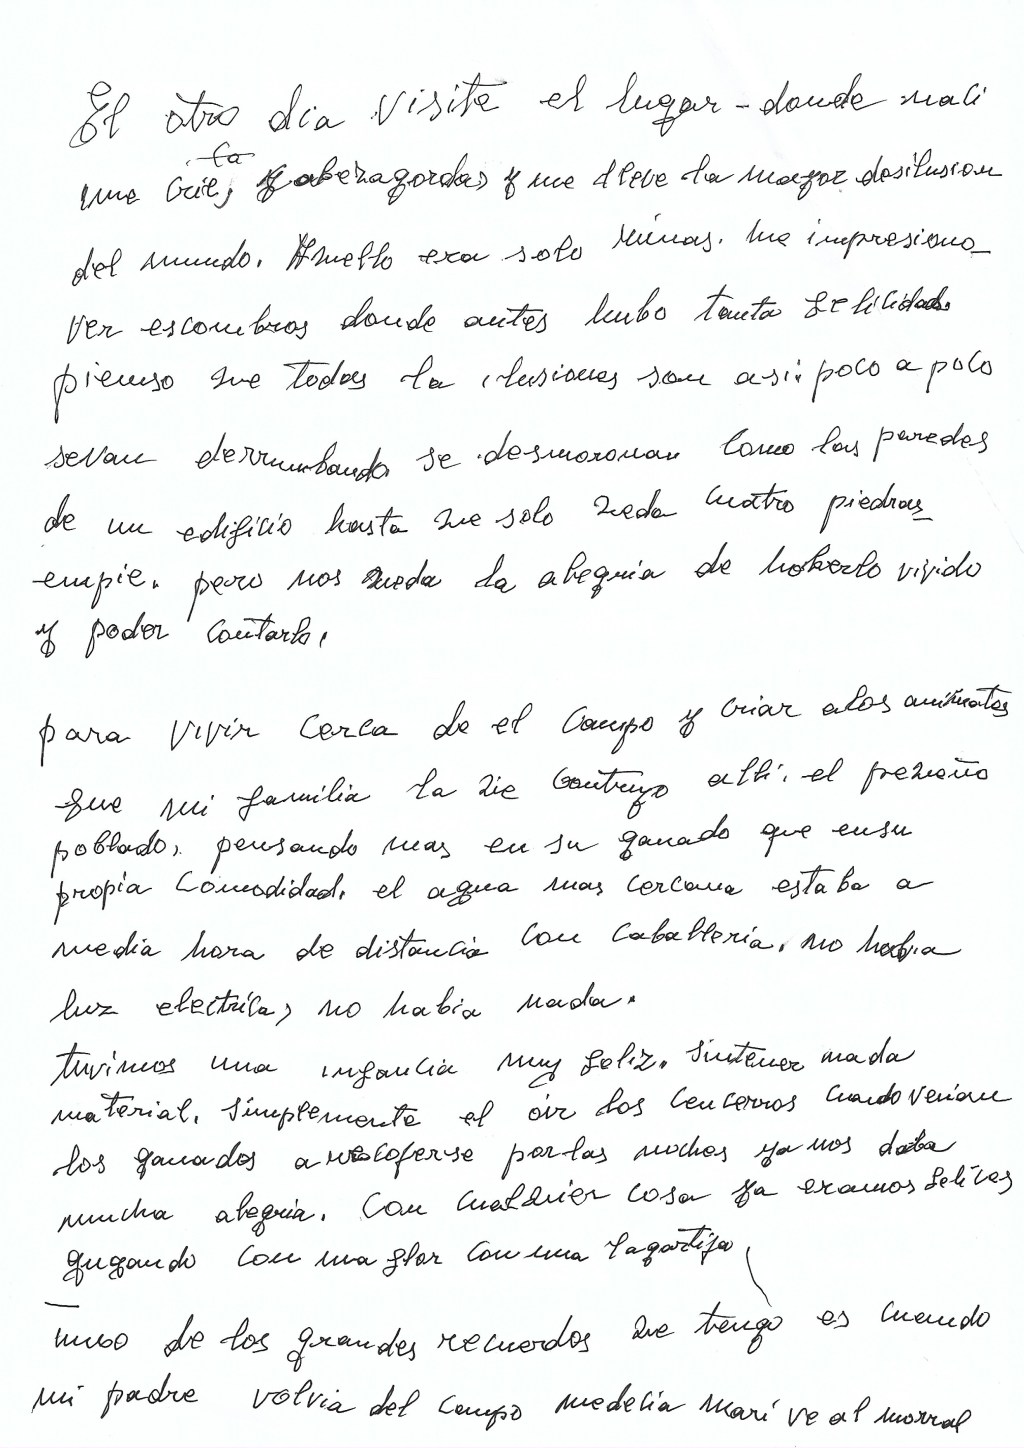 El otro dia visite el lugar - donde naci
me crie, Cabezagordas y me lleve la mayor desilusion
del mundo. Aquello era solo ruinas. me impresiono
ver escombros donde antes hubo tanta felicidad.
pienso que todas la ilusiones son asi: poco a poco
sevan derrumbando. se desmoronan como las paredes
de un edificio hasta que solo queda cuatro piedras
enpie. pero nos queda la alegria de haberlo vivido
y poder contarlo.
para vivir cerca de el campo y criar alos animales
fue mi familia la que contruyo alli. el pequeño
poblado. pensando mas en su ganado que ensu
propia comodidad. el agua mas cercana estaba a
media hora de distancia con caballeria. no habia
luz electrica, no habia nada.
tuvimos una infancia muy feliz. sintener nada
material. simplemente el oir los cencerros cuando venian
los ganados a recoferse porlas noches ya nos daba
mucha alegria. con cualquier cosa ya eramos felices
gugando con una flor con una lagartija
uno de los grandes recuerdos que tengo es cuando
mi padre volvia del campo medecia mari ve al morral